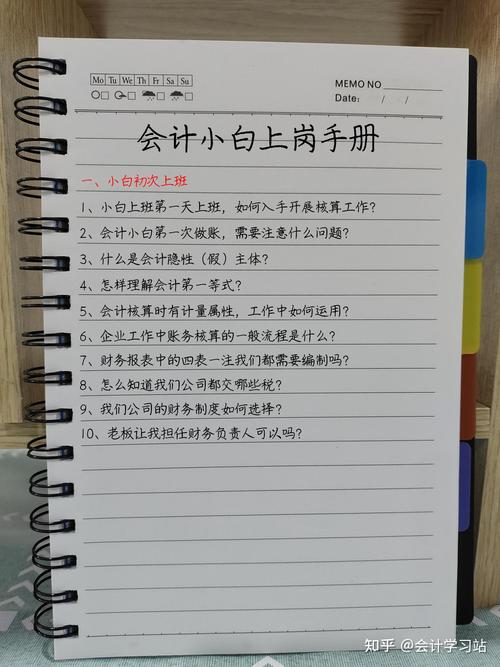 Mo Tu We Th Fr Sa Su
MEMO NO
Date: / /
会计小白上岗手册
一、小白初次上班
1、小白上班第一天上班，如何入手开展核算工作？
2、会计小白第一次做账，需要注意什么问题？
3、什么是会计隐性（假）主体？
4、怎样理解会计第一等式？
5、会计核算时有计量属性，工作中如何运用？
6、企业工作中账务核算的一般流程是什么？
7、财务报表中的四表一注我们都需要编制吗？
8、怎么知道我们公司都交哪些税？
9、我们公司的财务制度如何选择？
10、老板让我担任财务负责人可以吗？
知乎 @会计学习站